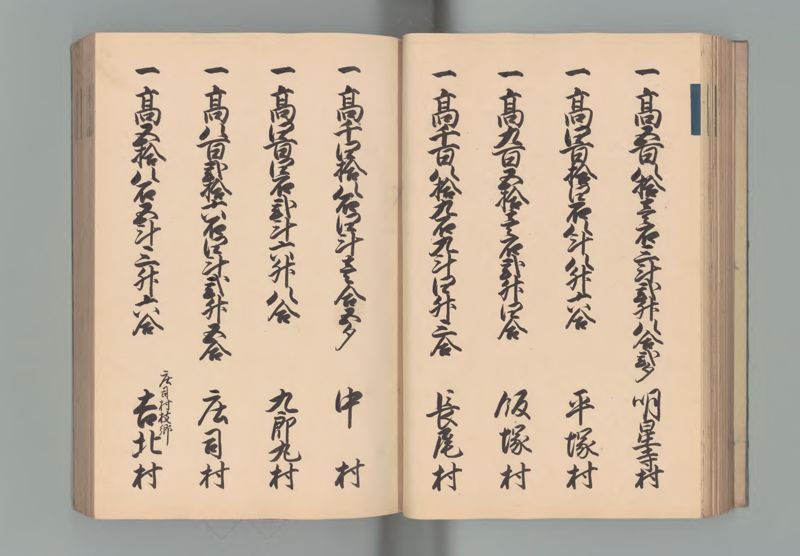 一高五百八拾壱石三斗弐升八合弐夕 明星寺村
一高四百拾四石八斗八升六合 平塚村
一高九百五拾壱石弐斗弐升四合 飯塚村
一高千百八拾九石九斗四升三合 長尾村
一高千四拾八石四斗壱合五夕 中村
一高四百四石弐斗六升八合 九郎丸村
一高八百弐拾六石四斗弐升五合 庄司村
庄司村枝郷
一高五拾八石五斗三升六合 吉北村